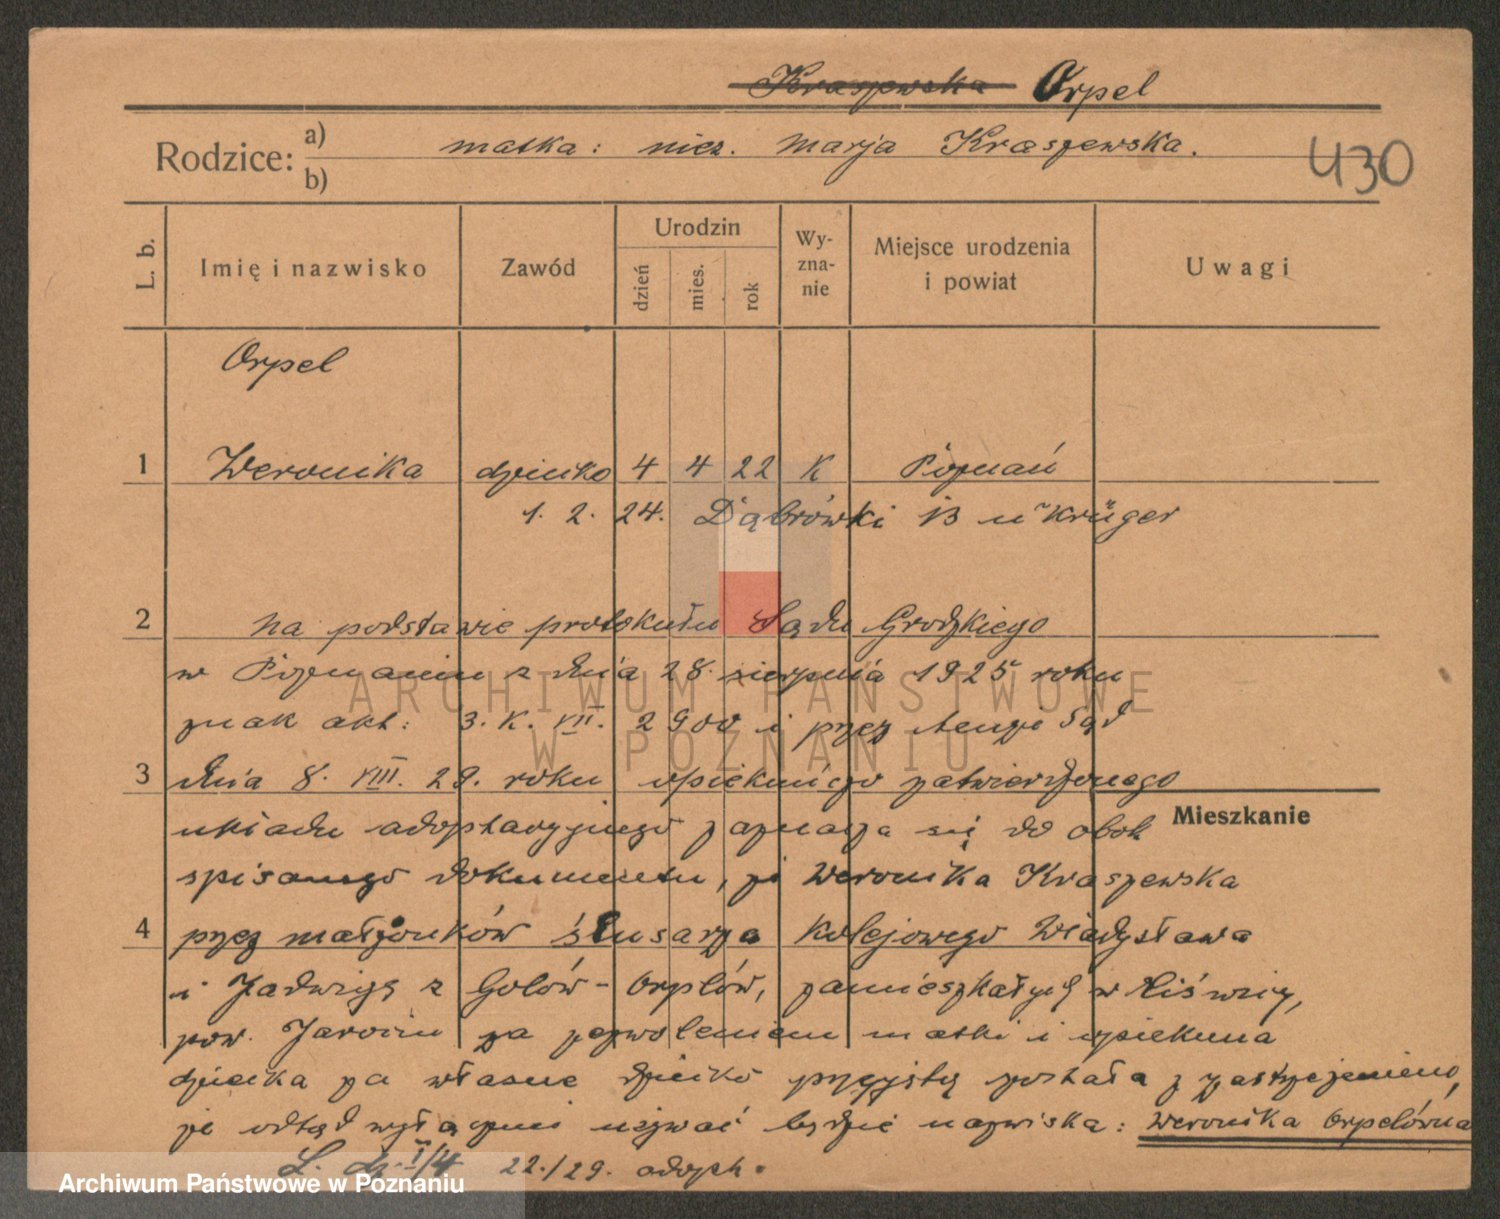 Kraszewska Orpel
Rodzice: a) matka: niez. Marja Kraszewska.
b)
430
L. b. Imię i nazwisko Zawód Urodzin dzień mies. rok Wy-zna-nie Miejsce urodzenia i powiat Uwagi
Orpel
1 Weronika dziecko 4 4 22 K Poznań
1. 2. 24. Dąbrówki 13 u Krüger
2 Na podstawie protokułu Sądu Grodzkiego
w Poznaniu z dnia 28. sierpnia 1925 roku
znak akt: 3. K. VII. 2900 i przez tenże Sąd
3 dnia 8. VIII. 29. roku opiekuńczo zatwierdzonego
układu adoptacyjnego zaznacza się do obok
Mieszkanie
spisanego dokumentu, że Weronika Kraszewska
4 przez małżonków ślusarza kolejowego Władysława
i Jadwigę z Golów-Orplów, zamieszkałych w
pow. Jarocin za pozwoleniem matki i opiekuna
dziecka za własne dziecko przyjętą została z zastrzeżeniem,
że odtąd wyłącznie używać będzie nazwiska: Weronika Orplówna
L. dz. I/4 22./29. adopt.
ARCHIWUM PAŃSTWOWE
W POZNANIU
Archiwum Państwowe w Poznaniu